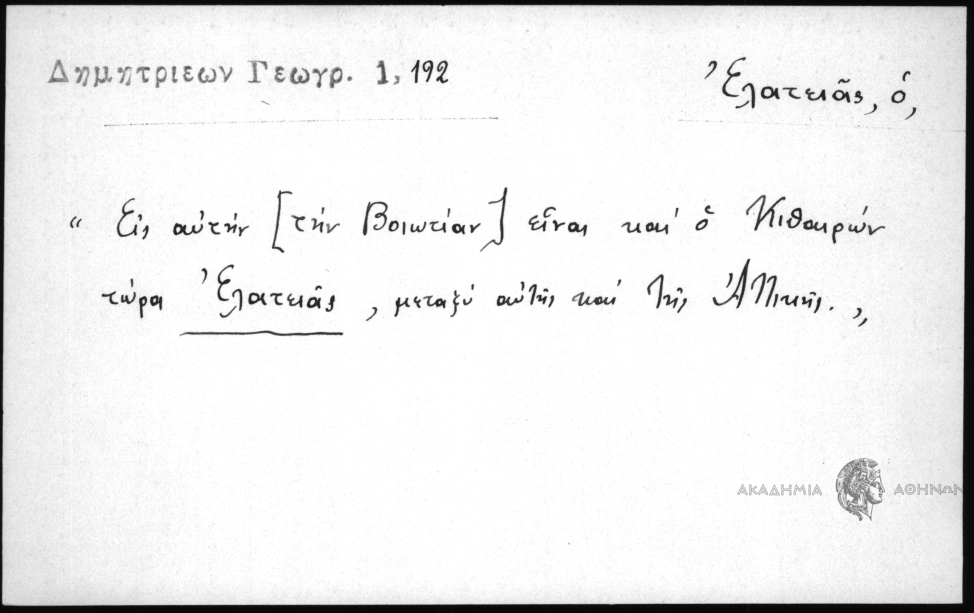 Δημητριεων Γεωγρ. 1, 192
Ἐλατειᾶς, ὁ,
“ Εἰς αὐτὴν [τὴν Βοιωτίαν] εἶναι καὶ ὁ Κιθαιρών
τώρα Ἐλατειᾶς, μεταξύ αὐτῆς καὶ τῆς Ἀττικῆς. „
ΑΚΑΔΗΜΙΑ ΑΘΗΝΩΝ